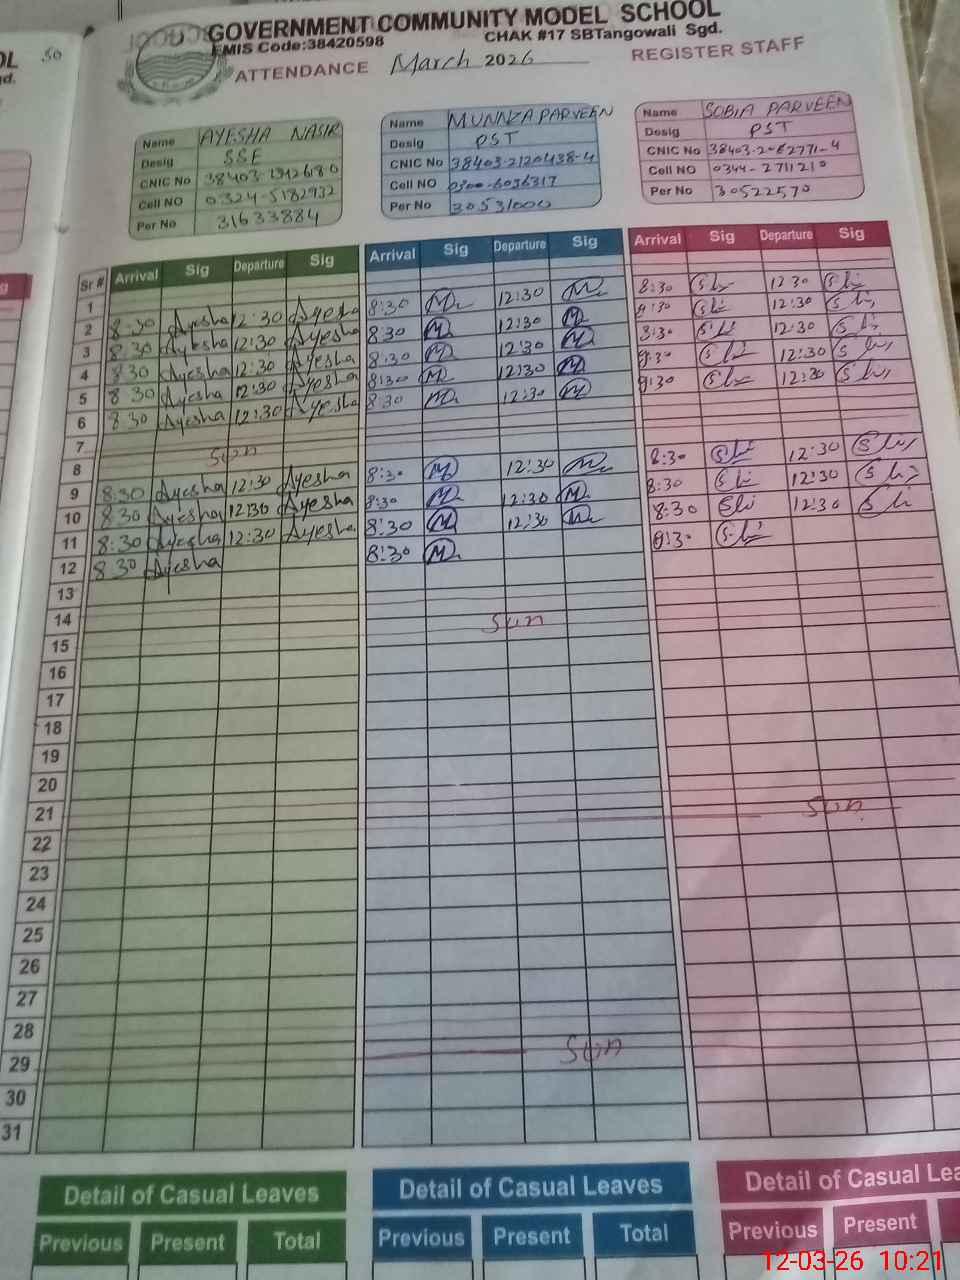 GOVERNMENT COMMUNITY MODEL SCHOOL
EMIS Code:38420598 CHAK #17 SBTangowali Sgd.
ATTENDANCE March 2026 REGISTER STAFF
Name AYESHA NASIR
Desig SSE
CNIC No
Cell NO 0324-5182932
Per No 31633884
Name MUNNZA PARVEEN
Desig PST
CNIC No 38403-2120438-4
Cell NO 0300-6036317
Per No 30531000
Name SOBIA PARVEEN
Desig PST
CNIC No
Cell NO 0344-2711210
Per No 30522570
Sr # Arrival Sig Departure Sig Arrival Sig Departure Sig Arrival Sig Departure Sig
1
2 8:30 Ayesha 12:30 Ayesha 8:30 12:30 8:30 12:30
3 8:30 Ayesha 12:30 Ayesha 8:30 12:30 8:30 12:30
4 8:30 Ayesha 12:30 Ayesha 8:30 12:30 8:30 12:30
5 8:30 Ayesha 12:30 Ayesha 8:30 12:30 8:30 12:30
6 8:30 Ayesha 12:30 Ayesha 8:30 12:30 8:30 12:30
7
8 Sun
9 8:30 Ayesha 12:30 Ayesha 8:30 12:30 8:30 12:30
10 8:30 Ayesha 12:30 Ayesha 8:30 12:30 8:30 12:30
11 8:30 Ayesha 12:30 Ayesha 8:30 12:30 8:30 12:30
12 8:30 Ayesha 8:30 8:30
13
14
15 Sun
16
17
18
19
20
21
22 Sun
23
24
25
26
27
28
29 Sun
30
31
Detail of Casual Leaves Detail of Casual Leaves Detail of Casual
Previous Present Total Previous Present Total Previous Present
12-03-26 10:21